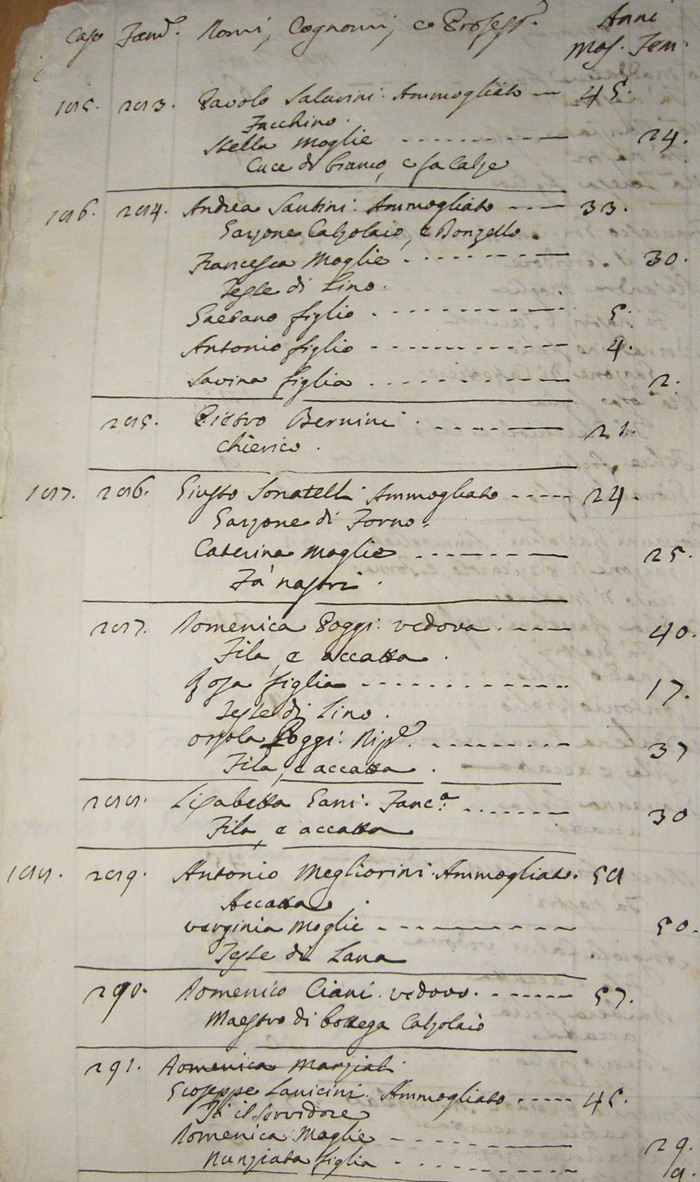 Case Fam.e Nomi, Cognomi, e Profess.i Anni
Mas. Fem.
185. 283. Pavolo Salavini Ammogliato --- 45.
Facchino.
Stella Moglie --- 24.
Cuce di bianco, e fa Calze
186. 284. Andrea Santini Ammogliato --- 33.
Garzone Calzolaio, e Donzello.
Francesca Moglie --- 30.
Tesse di Lino.
Gaetano figlio --- 5.
Antonio figlio --- 4.
Savina figlia --- 2.
285. Pietro Bernini --- 21.
Chierico.
187. 286. Giusto Donatelli Ammogliato --- 24.
Garzone di Forno.
Caterina Moglie --- 25.
Fà nastri.
287. Domenica Poggi vedova --- 40.
Fila, e accatta.
Rosa figlia --- 17.
Tesse di Lino.
Orsola Poggi --- 37
Fila, e accatta.
288. Lisabetta Gani Fanc.a --- 30
Fila, e accatta
188. 289. Antonio Megliorini Ammogliato. 58
Accatta.
Verginia Moglie --- 50.
Tesse di Lana
290. Domenico Ciani vedovo --- 57.
Maestro di bottega Calzolaio
291. Domenica Marziali
Gioseppe Lanicini Ammogliato --- 45.
Fà il Servidore
Domenica Moglie --- 29.
Nunziata figlia --- 9.